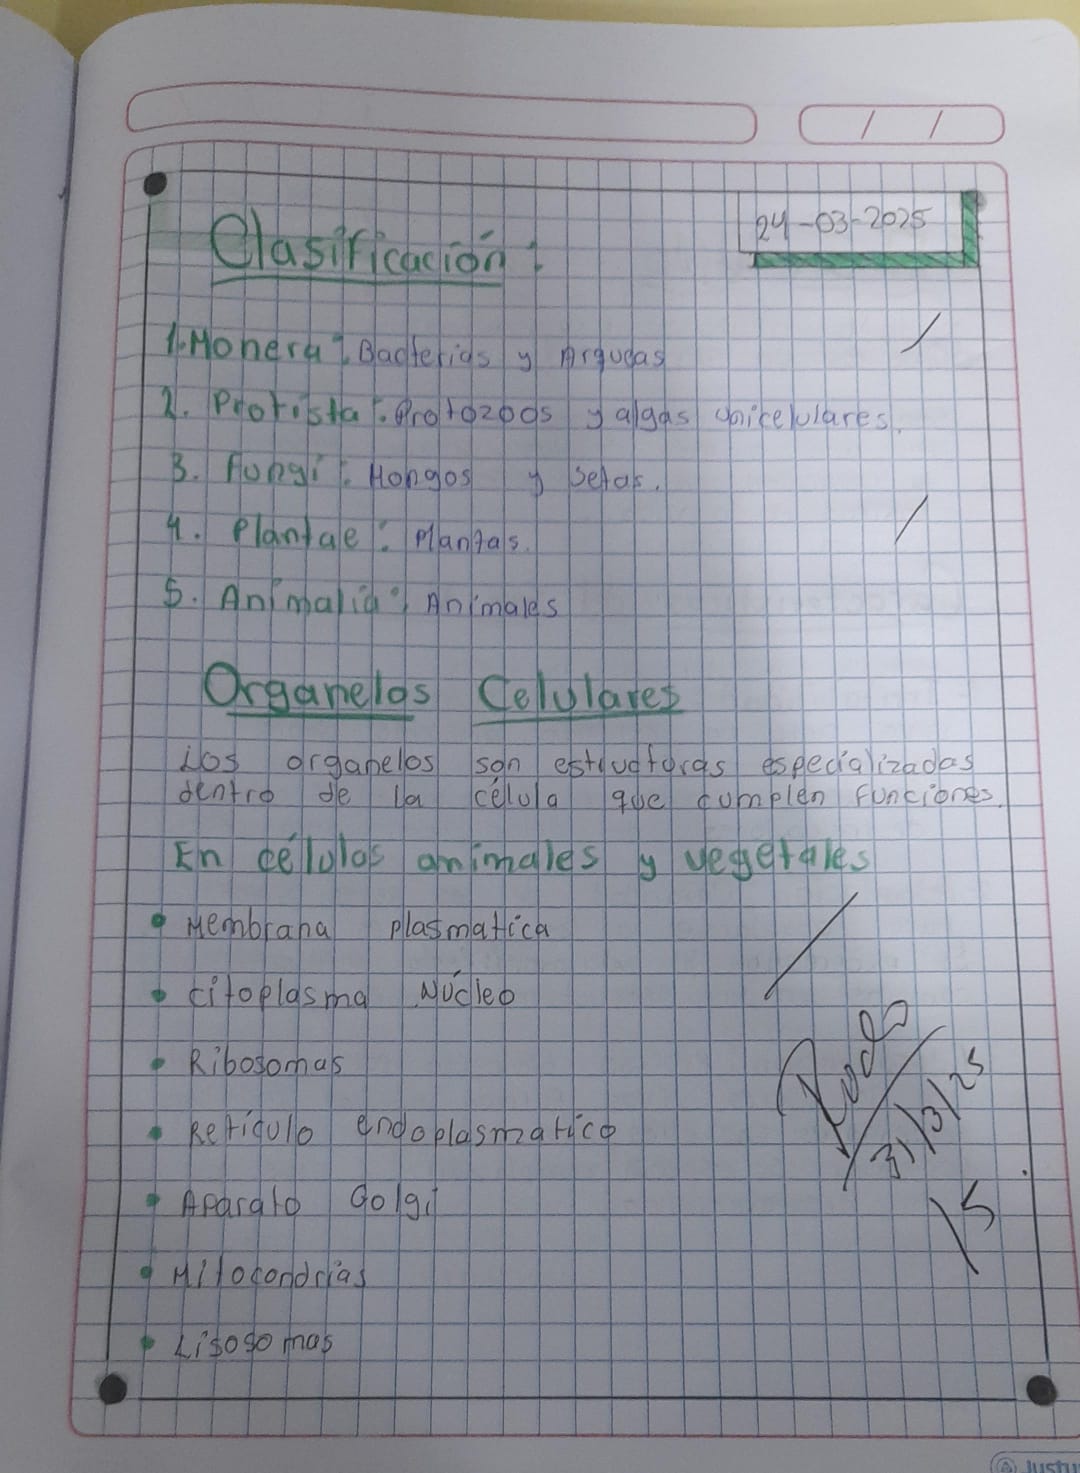 24-03-2025
Clasificación:
1. Monera: Bacterias y Arqueas
2. Protista: Protozoos y algas unicelulares.
3. Fungi: Hongos y Setas.
4. Plantae: Plantas.
5. Animalia: Animales
Organelos Celulares
Los organelos son estructuras especializadas
dentro de la célula que cumplen funciones.
En células animales y vegetales
• Membrana plasmatica
• citoplasma Núcleo
• Ribosomas
• Reticulo endoplasmatico
• Aparato Golgi
• Mitocondrias
• Lisosomas
31/3/25
15